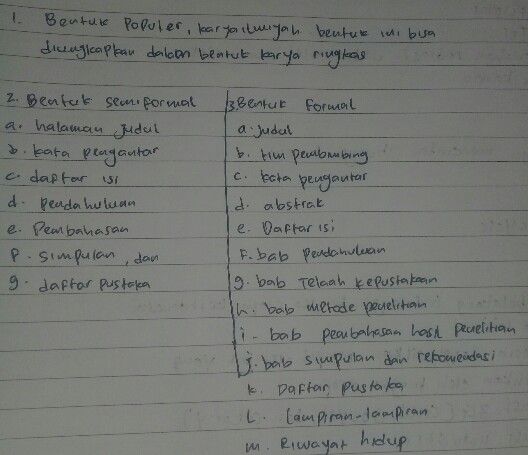 1. Bentuk Populer, karya ilmiyah bentuk ini bisa
diungkapkan dalam bentuk karya ringkas
2. Bentuk semiformal
a. halaman judul
b. kata pengantar
c. daftar isi
d. pendahuluan
e. Pembahasan
f. simpulan, dan
g. daftar pustaka
3. Bentuk formal
a. judul
b. tim pembimbing
c. kata pengantar
d. abstrak
e. Daftar isi
F. bab pendahuluan
g. bab Telaah kepustakaan
h. bab metode penelitian
i. bab pembahasan hasil penelitian
j. bab simpulan dan rekomendasi
k. Daftar pustaka
L. lampiran-lampiran
m. Riwayat hidup